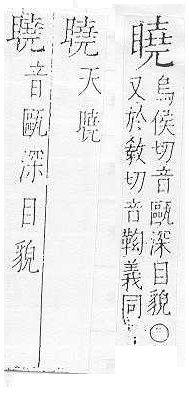 䁱烏侯切音甌深目貌〇
又於敎切音靿義同
曉天曉
䁱音甌深目貌